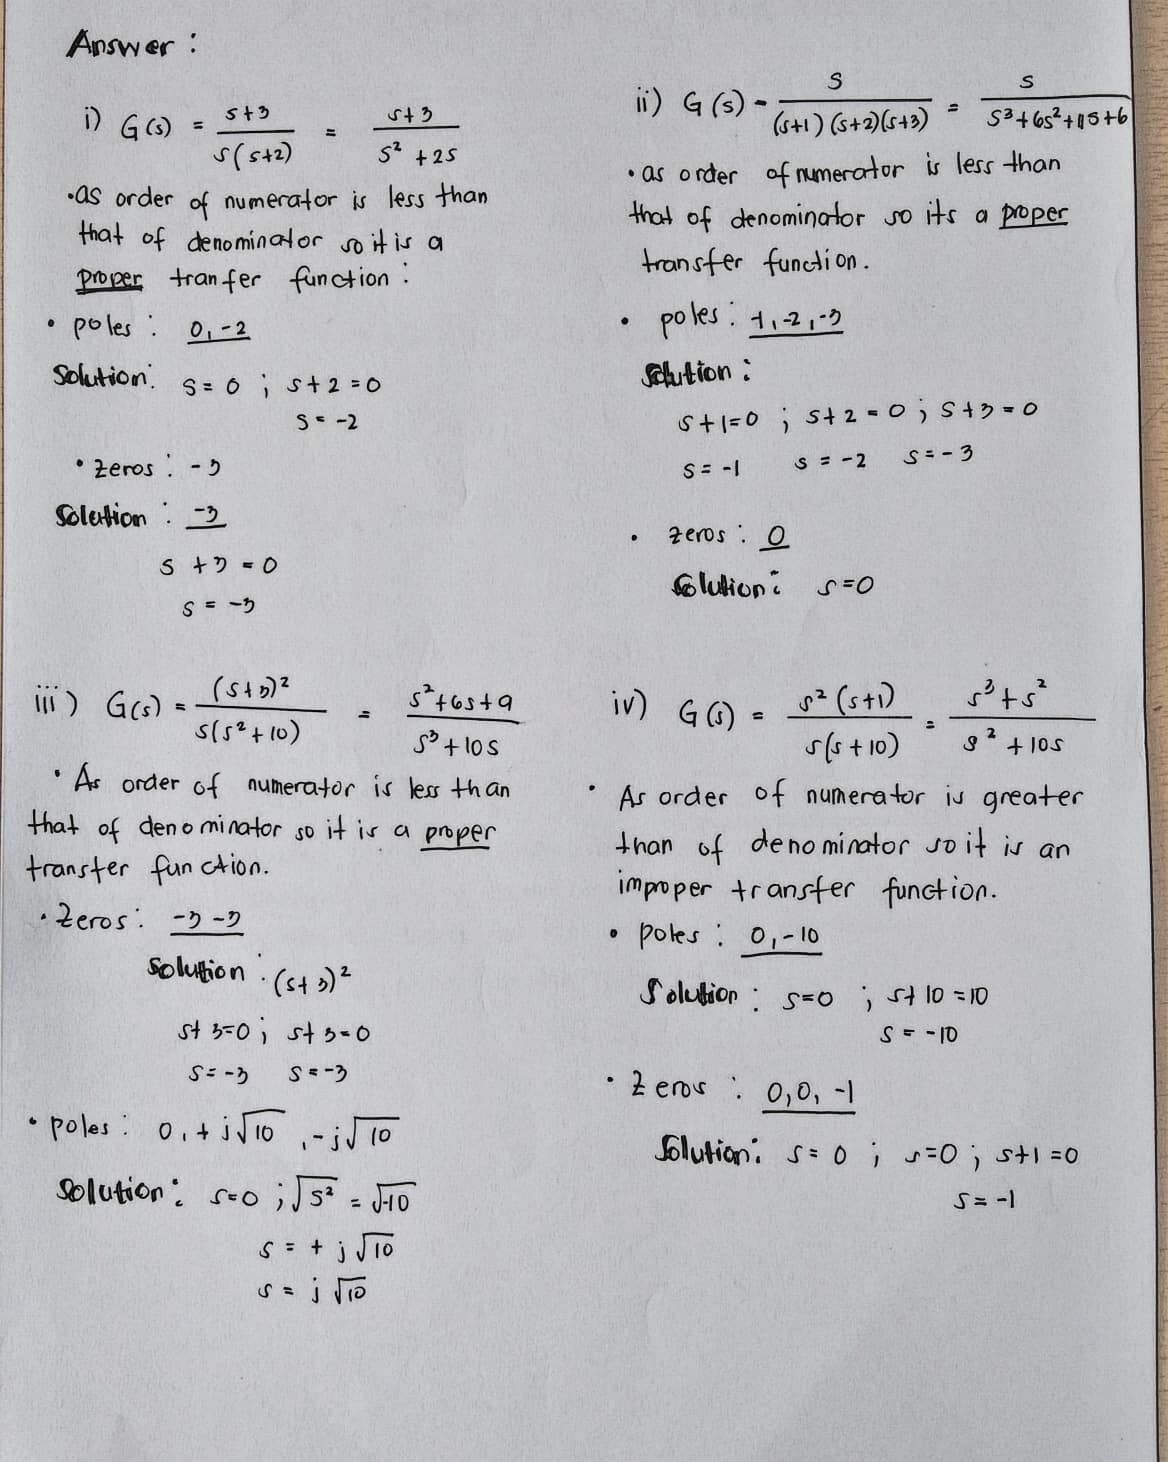 Answer :
i) G(s) = s+3 / s(s+2) = s+3 / s² + 2s
•as order of numerator is less than
that of denominator so it is a
proper tranfer function :
• poles : 0, -2
Solution: s = 0 ; s+2 = 0
s = -2
• zeros : -3
Solution : -3
s + 3 = 0
s = -3
ii) G(s) - s / (s+1)(s+2)(s+3) = s / s³+6s²+11s+6
• as order of numerator is less than
that of denominator so its a proper
transfer function.
• poles : -1, -2, -3
Solution :
s+1=0 ; s+2 = 0 ; s+3 = 0
s = -1 s = -2 s = -3
• zeros : 0
Solution : s=0
iii) G(s) = (s+3)² / s(s²+10) = s²+6s+9 / s³+10s
• As order of numerator is less than
that of denominator so it is a proper
transfer function.
• Zeros : -3 -3
Solution : (s+3)²
s+3=0 ; s+3=0
s=-3 s=-3
• poles : 0, + j√10, -j√10
Solution : s=0 ; √s² = √-10
s = + j √10
s = j √10
iv) G(s) = s²(s+1) / s(s+10) = s³+s² / s²+10s
• As order of numerator is greater
than of denominator so it is an
improper transfer function.
• poles : 0, -10
Solution : s=0 ; s+10 =10
s = -10
• Zeros : 0,0, -1
Solution : s= 0 ; s=0 ; s+1 =0
s = -1